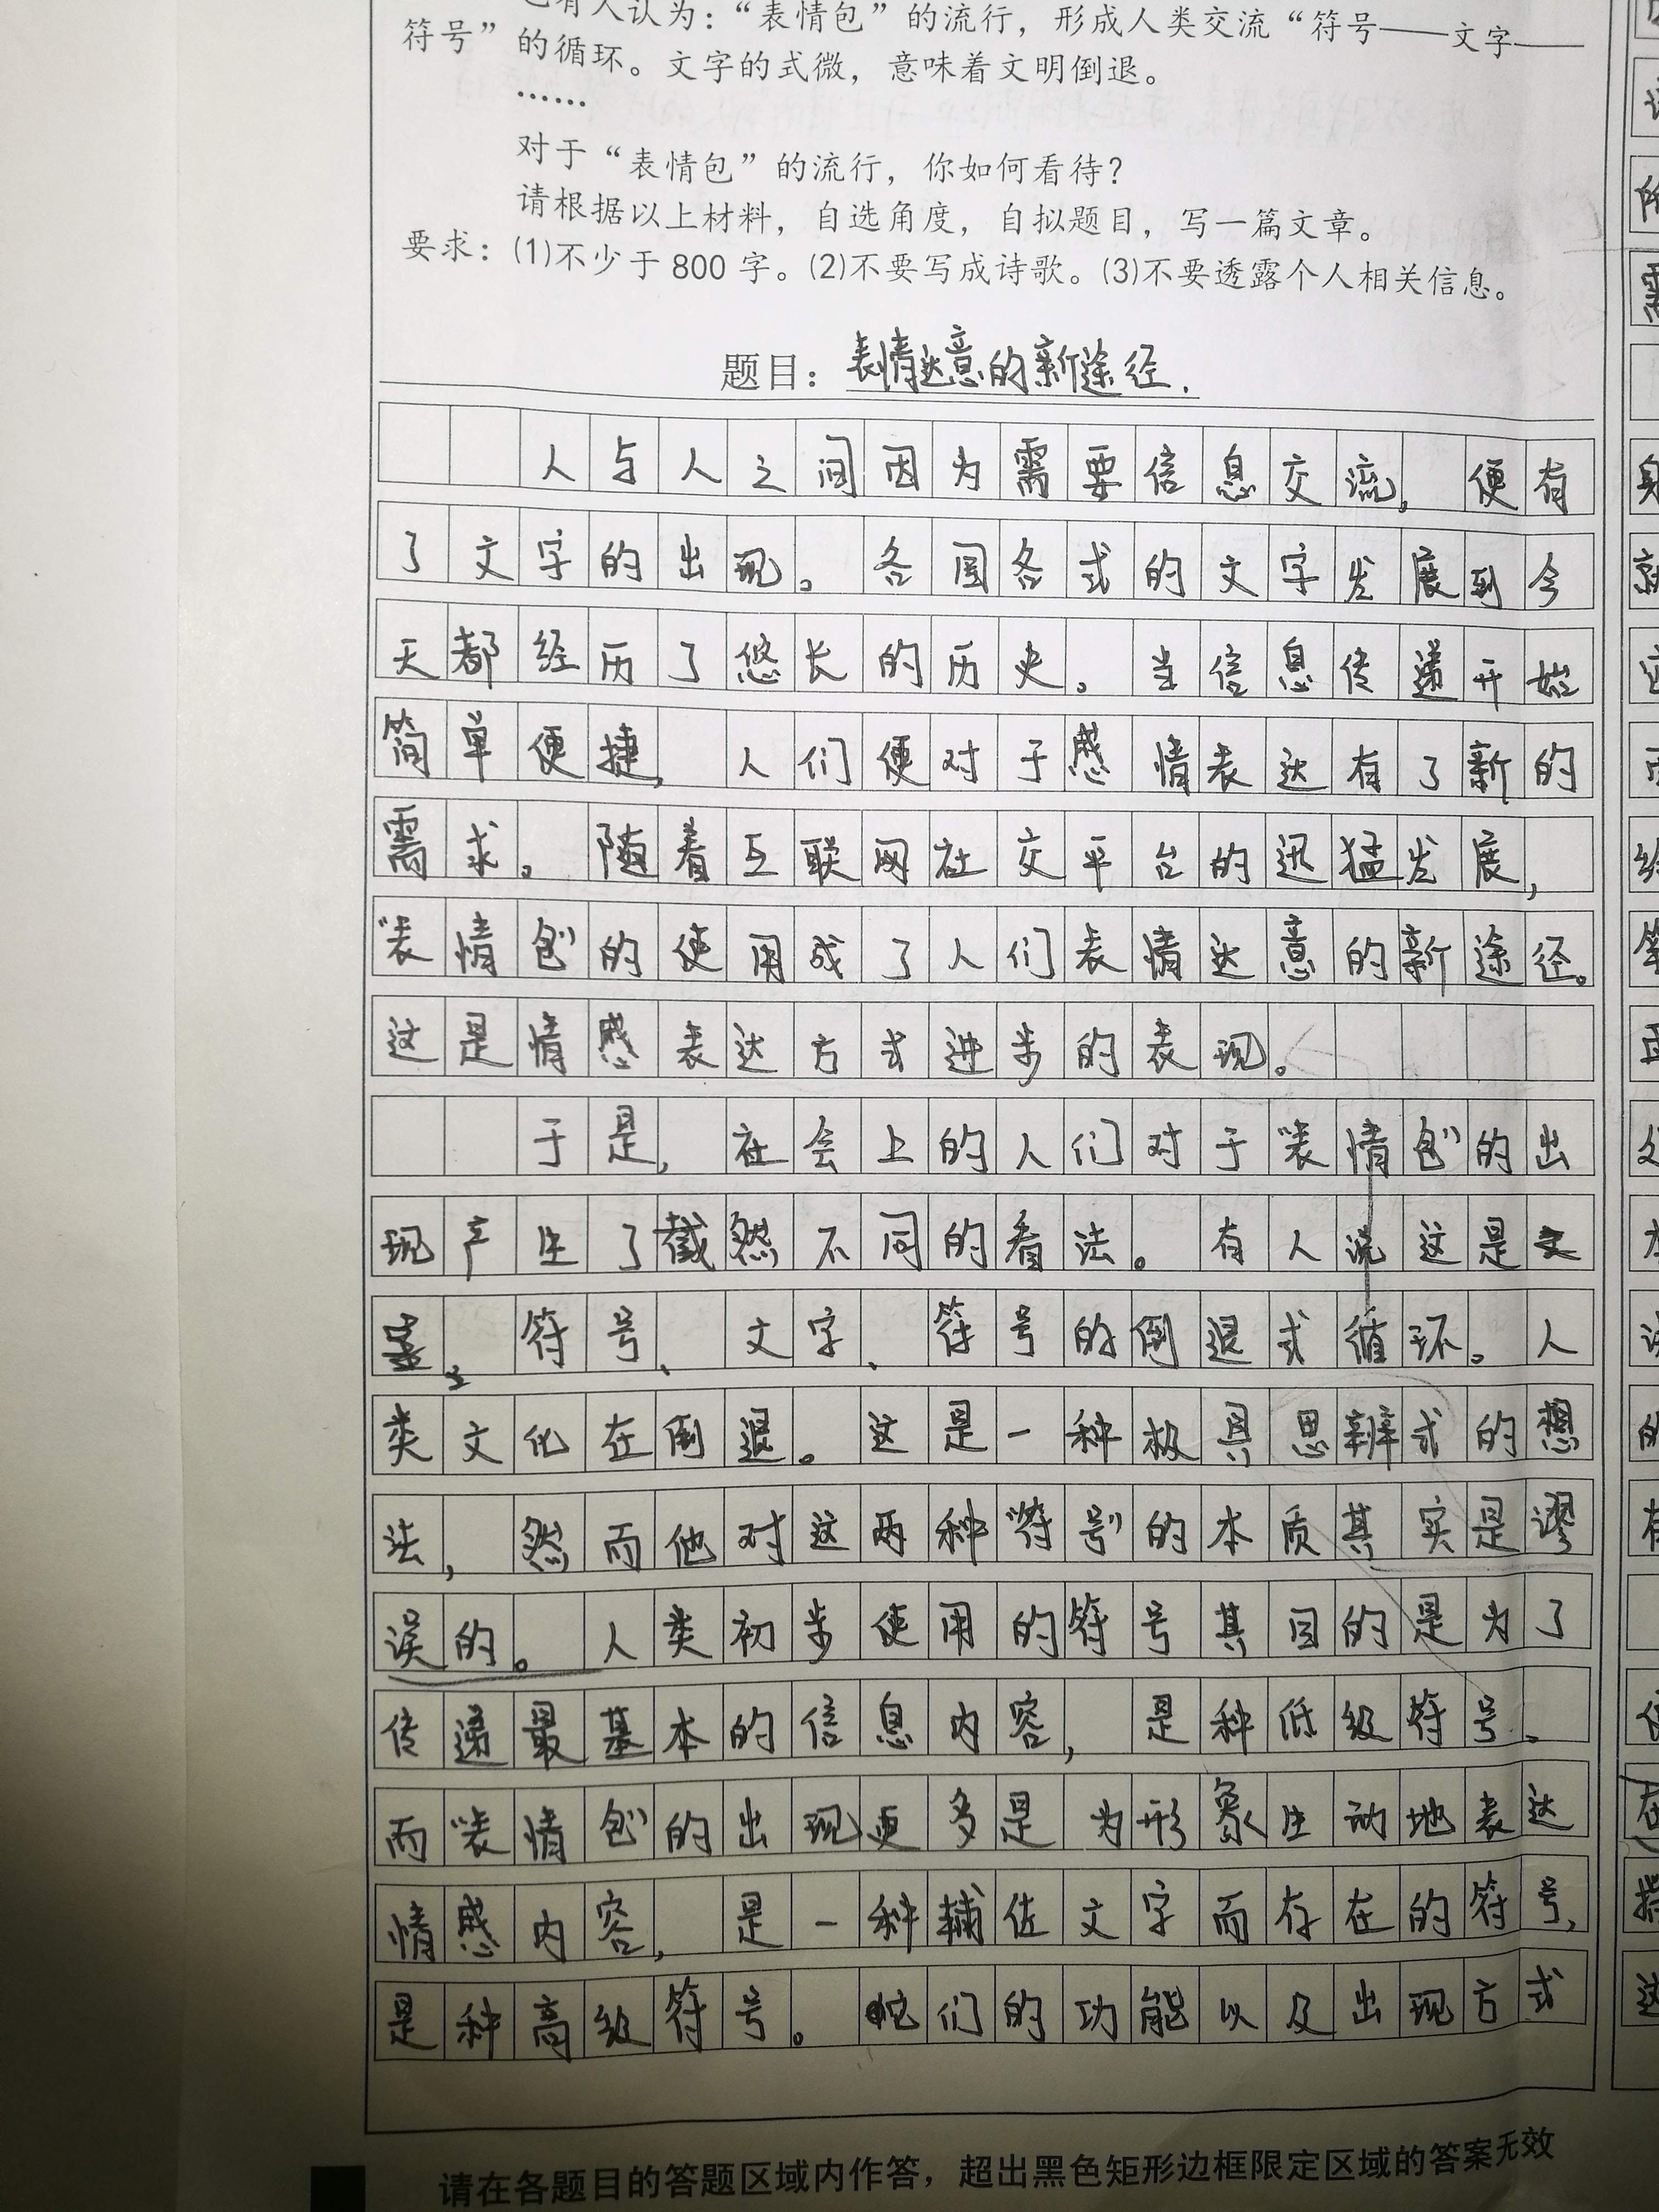 也有人认为：“表情包”的流行，形成人类交流“符号——文字——
符号”的循环。文字的式微，意味着文明倒退。
……
对于“表情包”的流行，你如何看待？
请根据以上材料，自选角度，自拟题目，写一篇文章。
要求：(1)不少于800字。(2)不要写成诗歌。(3)不要透露个人相关信息。
题目：表情达意的新途径.
人与人之间因为需要信息交流，便有
了文字的出现。各国各式的文字发展到今
天都经历了悠长的历史。当信息传递开始
简单便捷，人们便对于感情表达有了新的
需求。随着互联网社交平台的迅猛发展，
“表情包”的使用成了人们表情达意的新途径。
这是情感表达方式进步的表现。
于是，社会上的人们对于“表情包”的出
现产生了截然不同的看法。有人说这是
符号、文字、符号的倒退式循环。人
类文化在倒退。这是一种极具思辨式的想
法，然而他对这两种“符号”的本质其实是谬
误的。人类初步使用的符号其目的是为了
传递最基本的信息内容，是种低级符号。
而“表情包”的出现更多是为形象生动地表达
情感内容，是一种辅佐文字而存在的符号，
是种高级符号。它们的功能以及出现方式
请在各题目的答题区域内作答，超出黑色矩形边框限定区域的答案无效